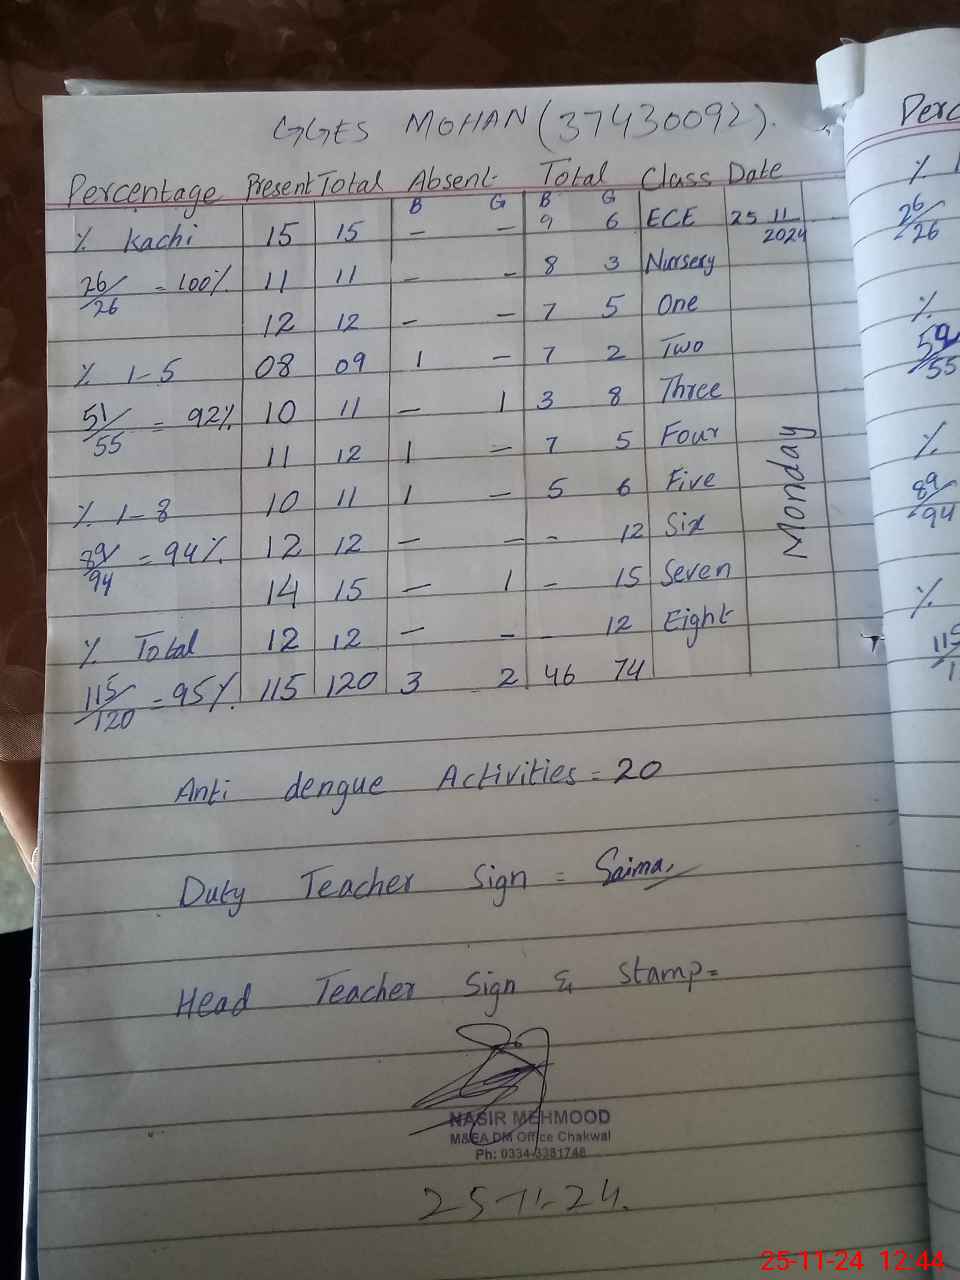 GGES MOHAN (37430092).
Percentage Present Total Absent Total Class Date
B G B G
% Kachi 15 15 – – 9 6 ECE 25 11 2024
26/26 = 100% 11 11 – – 8 3 Nursery
12 12 – – 7 5 One
% 1-5 08 09 1 – 7 2 Two
51/55 = 92% 10 11 – 1 3 8 Three
11 12 1 – 7 5 Four
% 1-8 10 11 1 – 5 6 Five
89/94 = 94% 12 12 – – - 12 Six
14 15 – 1 - 15 Seven
% Total 12 12 – - - 12 Eight
115/120 = 95%. 115 120 3 2 46 74
Monday
Anti dengue Activities = 20
Duty Teacher Sign = Saima
Head Teacher Sign & Stamp =
NASIR MEHMOOD
M&EA DM Office Chakwal
Ph: 0334-3381748
25-11-24.
Perc
%
26/26
%
59/55
%
89/94
%
115
25-11-24 12:44